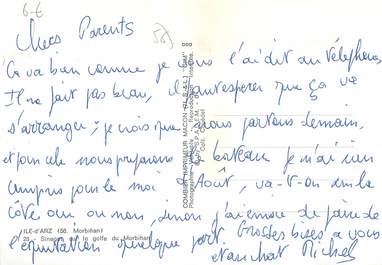 6-6
Chers Parents
Ca va bien comme je vous l'ai dit au téléphone
Il ne fait pas beau, il faut esperer que ça va
s'arranger; je crois que nous partons demain,
et pour cela nous preparons le bateau je n'ai rien
compris pour le mois d'Août, va-t-on dans la
côte oui ou non, sinon j'ai envie de faire de
l'équitation quelque part. Grosses bises a vous
et au chat Michel
COMBIER IMPRIMEUR MACON (71. S.&L.) "CIM"
ILE-d'ARZ (56. Morbihan)
25. Sinagot sur le golfe du Morbihan